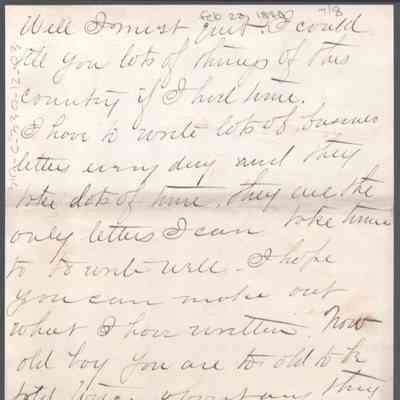 Feb 23, 7/8
Well I must quit. I could
tell you lots of things of this
country if I had time.
I have to write lots of business
letters every day and they
take lots of time, they are the
only letters I can take time
to to write well. I hope
you can make out
what I have written. Now
old boy you are to old to be
told things about any they